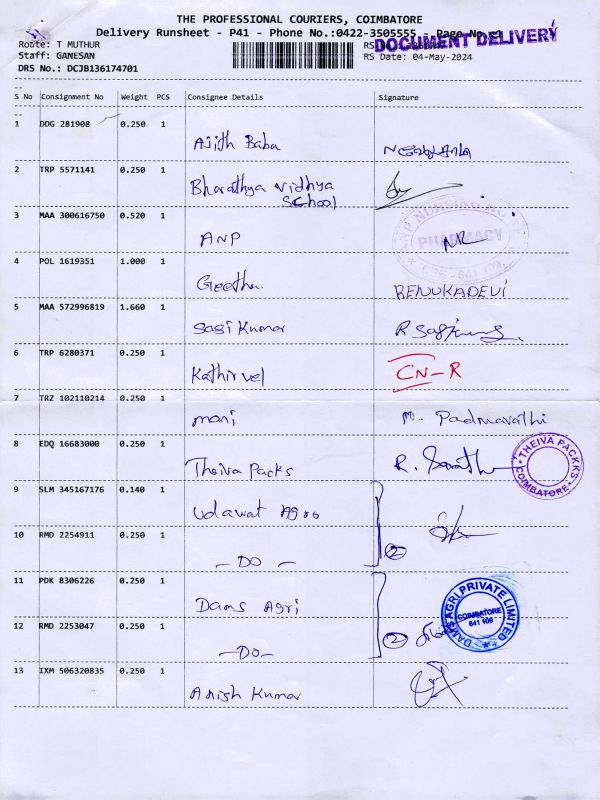 THE PROFESSIONAL COURIERS, COIMBATORE
Delivery Runsheet - P41 - Phone No.:0422-3505555 Page No.
DOCUMENT DELIVERY
Route: T MUTHUR
Staff: GANESAN
RS Date: 04-May-2024
DRS No.: DCJB136174701
S No Consignment No Weight PCS Consignee Details Signature
1 DDG 281908 0.250 1
Ajith Babu
2 TRP 5571141 0.250 1
Bharathya Vidhya
School
3 MAA 300616750 0.520 1
ANP NR
PHARMACY
CBE - 641 109
4 POL 1619351 1.000 1
Geetha. RENUKADEVI
5 MAA 572996819 1.660 1
Sasi Kumar
6 TRP 6280371 0.250 1
Kathirvel CN-R
7 TRZ 102110214 0.250 1
mani M. Padmavathi
8 EDQ 16683000 0.250 1
Theiva Packs R. Sarath
THEIVA PACKS
COIMBATORE
9 SLM 345167176 0.140 1
Udawat Agro
10 RMD 2254911 0.250 1
- DO - 2
11 PDK 8306226 0.250 1
Dams Agri
DAMS AGRI PRIVATE LIMITED
COIMBATORE
641 109
12 RMD 2253047 0.250 1
- DO - 2
13 IXM 506320835 0.250 1
Anish Kumar